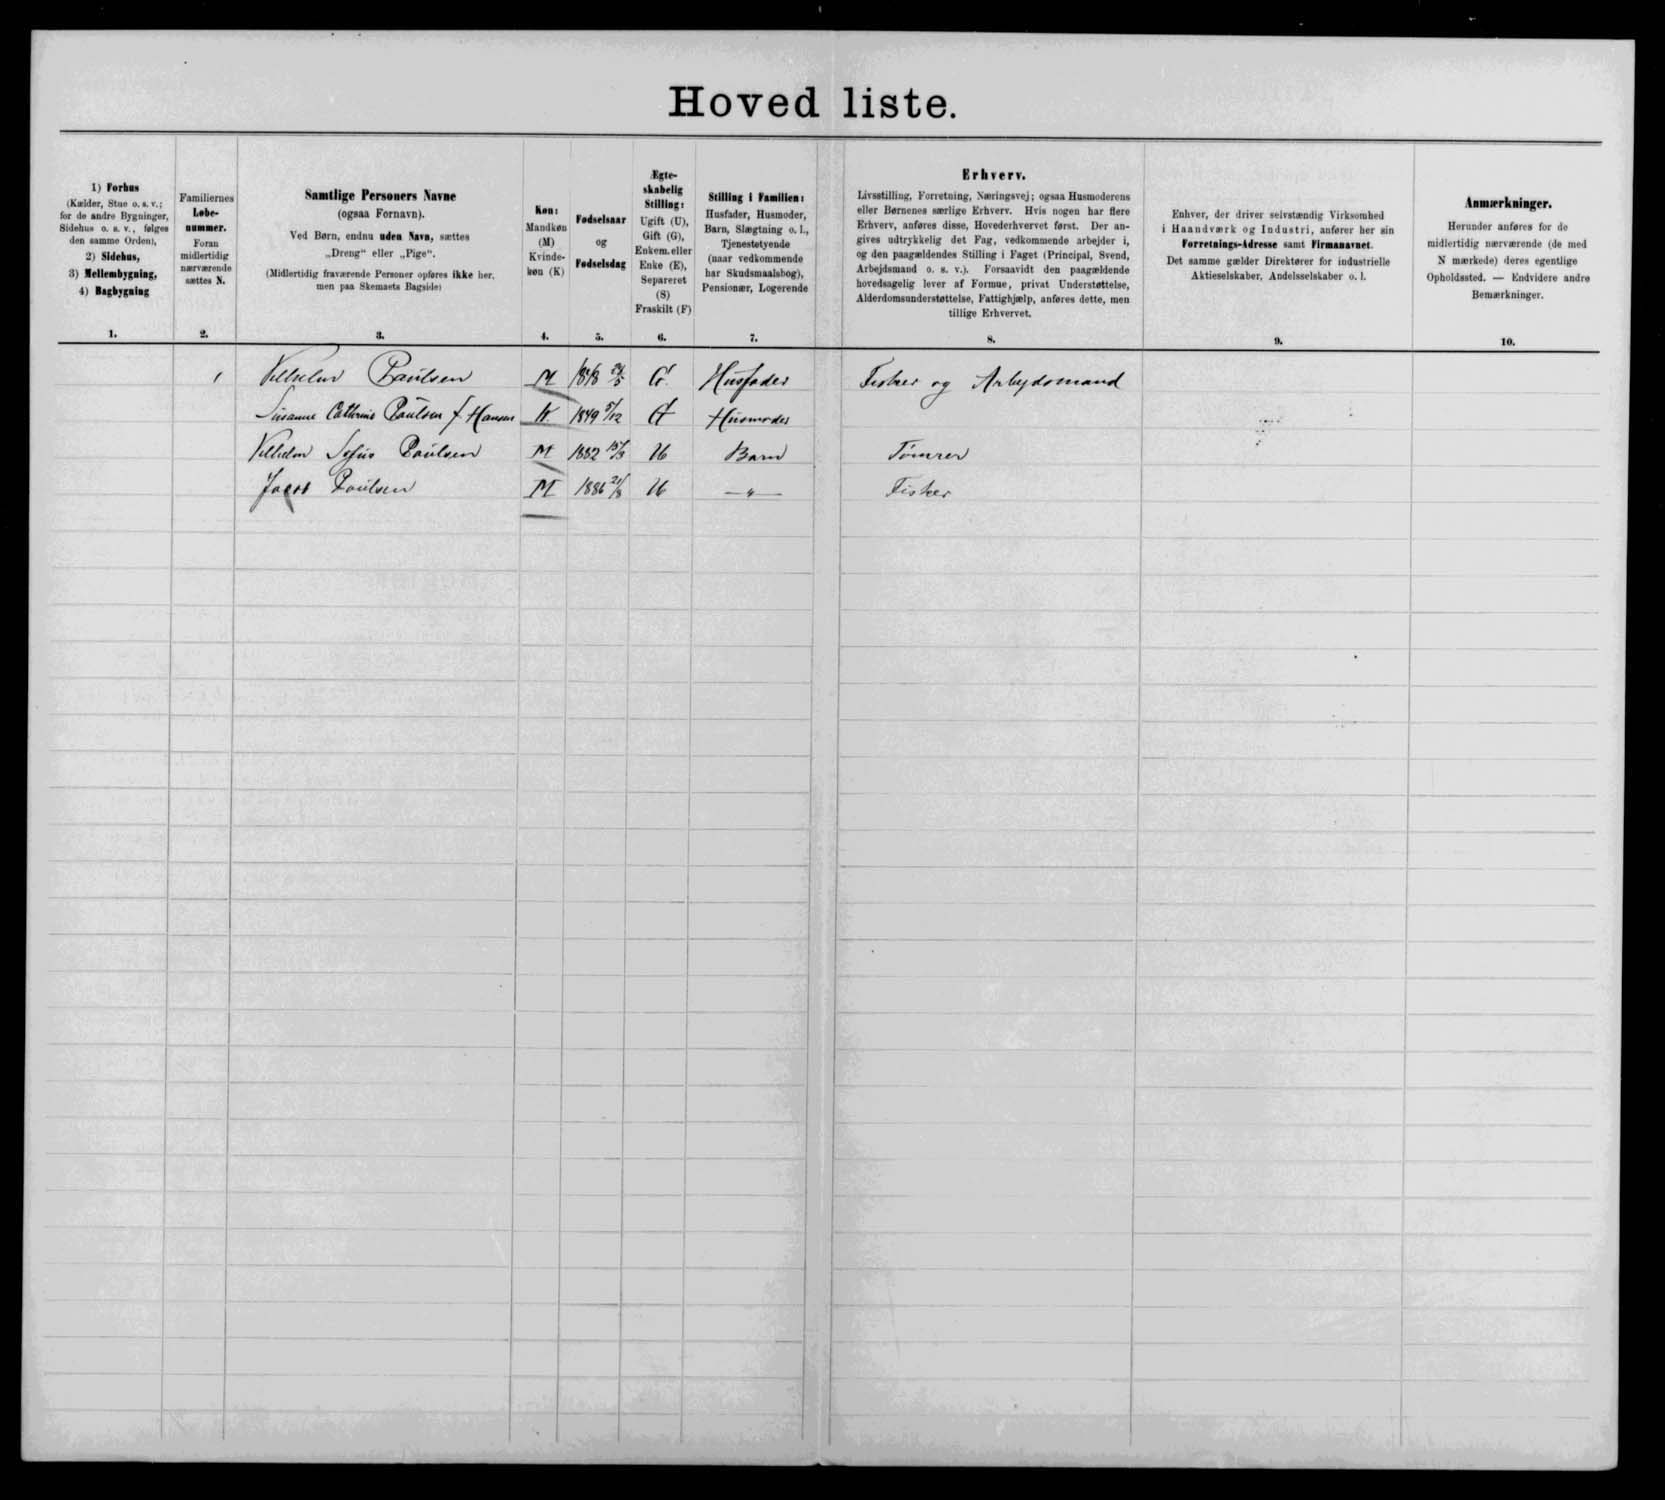 Hoved liste.
1) Forhus
(Kælder, Stue o. s. v.;
for de andre Bygninger,
Sidehus o. s. v., følges
den samme Orden),
2) Sidehus,
3) Mellembygning,
4) Bagbygning
1.
Familiernes
Løbe-
nummer.
Foran
midlertidig
nærværende
sættes N.
2.
Samtlige Personers Navne
(ogsaa Fornavn).
Ved Børn, endnu uden Navn, sættes
„Dreng“ eller „Pige“.
(Midlertidig fraværende Personer opføres ikke her,
men paa Skemaets Bagside)
3.
Køn:
Mandkøn
(M)
Kvinde-
køn (K)
4.
Fødselsaar
og
Fødselsdag
5.
Ægte-
skabelig
Stilling:
Ugift (U),
Gift (G),
Enkem. eller
Enke (E),
Separeret
(S)
Fraskilt (F)
6.
Stilling i Familien:
Husfader, Husmoder,
Barn, Slægtning o. l.,
Tjenestetyende
(naar vedkommende
har Skudsmaalsbog),
Pensionær, Logerende
7.
Erhverv.
Livsstilling, Forretning, Næringsvej; ogsaa Husmoderens
eller Børnenes særlige Erhverv. Hvis nogen har flere
Erhverv, anføres disse, Hovederhvervet først. Der an-
gives udtrykkelig det Fag, vedkommende arbejder i,
og den paagældendes Stilling i Faget (Principal, Svend,
Arbejdsmand o. s. v.). Forsaavidt den paagældende
hovedsagelig lever af Formue, privat Understøttelse,
Alderdomsunderstøttelse, Fattighjælp, anføres dette, men
tillige Erhvervet.
8.
Enhver, der driver selvstændig Virksomhed
i Haandværk og Industri, anfører her sin
Forretnings-Adresse samt Firmanavnet.
Det samme gælder Direktører for industrielle
Aktieselskaber, Andelsselskaber o. l.
9.
Anmærkninger.
Herunder anføres for de
midlertidig nærværende (de med
N mærkede) deres egentlige
Opholdssted. — Endvidere andre
Bemærkninger.
10.
1 Vilhelm Paulsen M 1848 G. Husfader Fisker og Arbejdsmand
Susanne Cathrine Paulsen f. Hansen K. 1849 5/12 G Husmoder
Vilhelm Sofus Paulsen M 1882 U Barn Tømrer
Jacob Paulsen M 1886 21/8 U — „ — Fisker